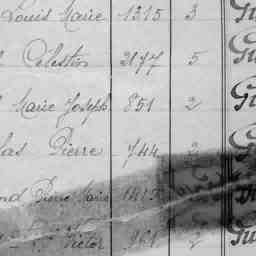 Louis Marie 1315 3 Gu
Célestin 2177 5 Gu
Marie Joseph 851 2 Gu
las Pierre 744 2 Gu
nd Pierre Marie 1415
Victor 961 2 Gu